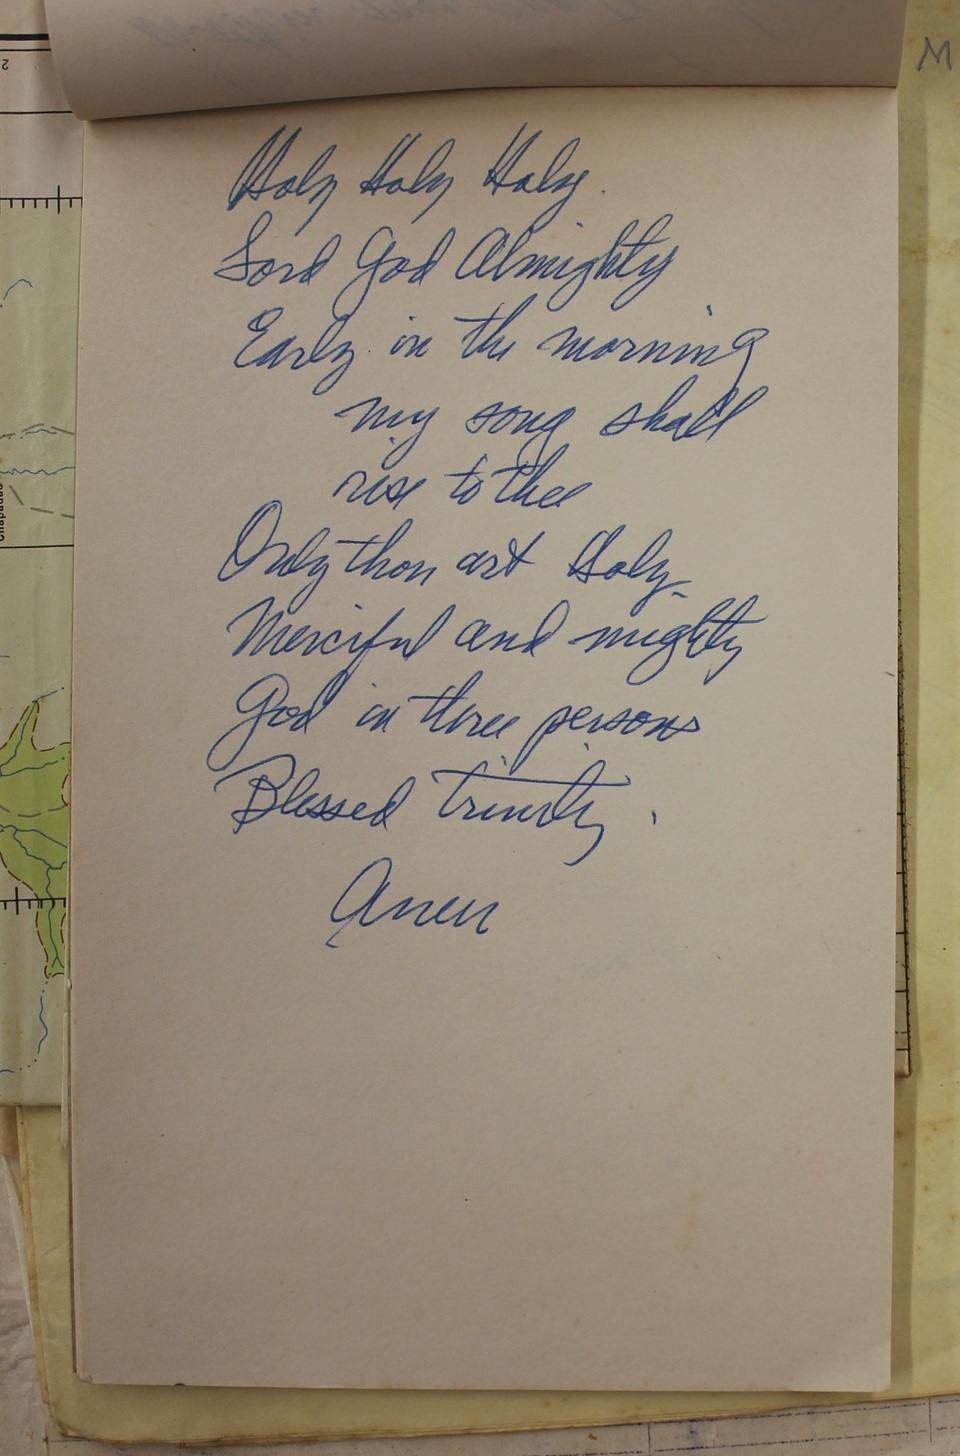 M
Holy Holy Holy.
Lord God Almighty
Early in the morning
my song shall
rise to thee
Only thou art Holy
Merciful and mighty
God in three persons
Blessed Trinity.
Amen